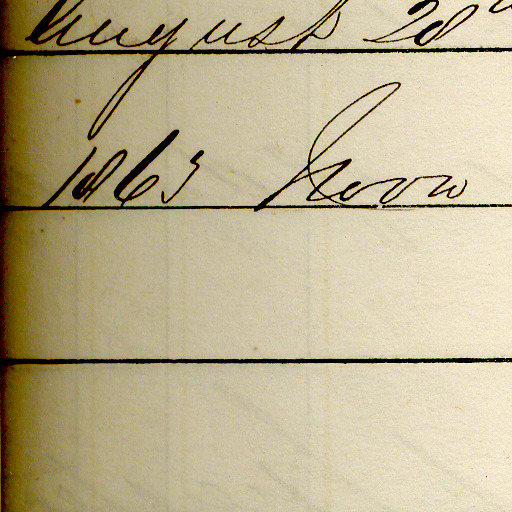 August 28
1863 Noon